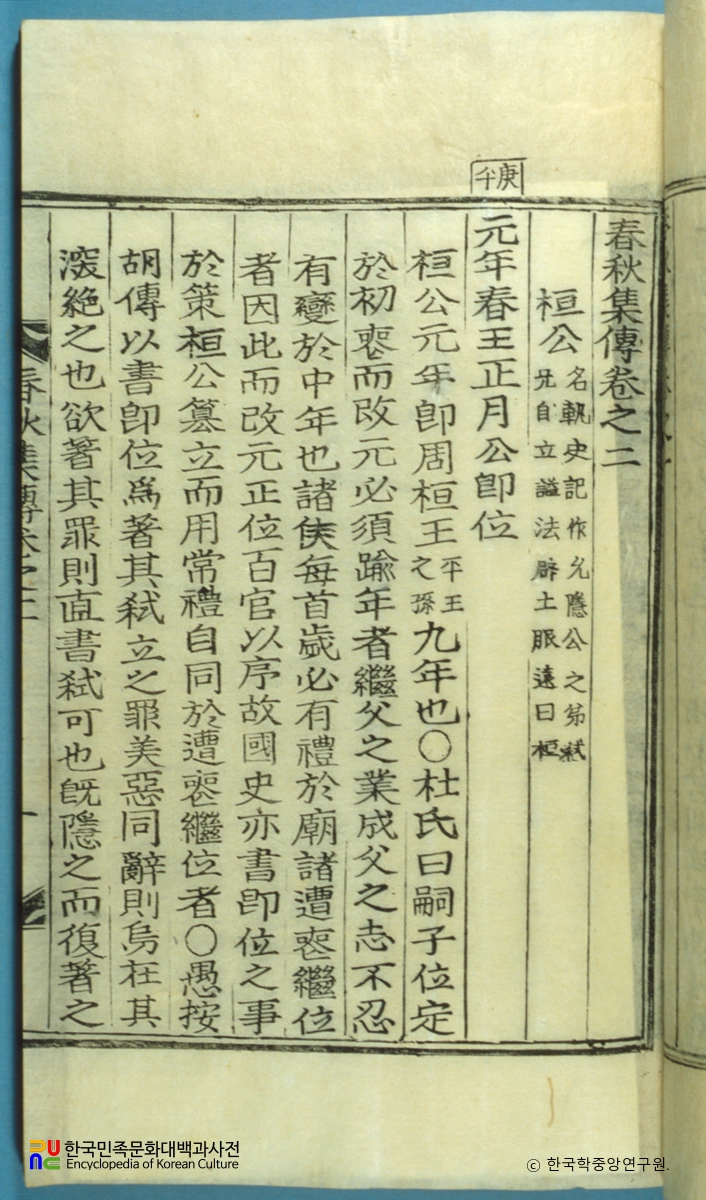 春秋集傳卷之二
桓公
名軌史記作允隱公之弟弑
兄自立諡法辟土服遠曰桓
庚午
元年春王正月公卽位
桓公元年卽周桓王平王之孫九年也○杜氏曰嗣子位定
於初喪而改元必須踰年者繼父之業成父之志不忍
有變於中年也諸侯每首歲必有禮於廟諸遭喪繼位
者因此而改元正位百官以序故國史亦書卽位之事
於策桓公簒立而用常禮自同於遭喪繼位者○愚按
胡傳以書卽位爲著其弑立之罪美惡同辭則烏在其
深絶之也欲著其罪則直書弑可也旣隱之而復著之
春秋集傳卷之二
一
한국민족문화대백과사전
Encyclopedia of Korean Culture
© 한국학중앙연구원.